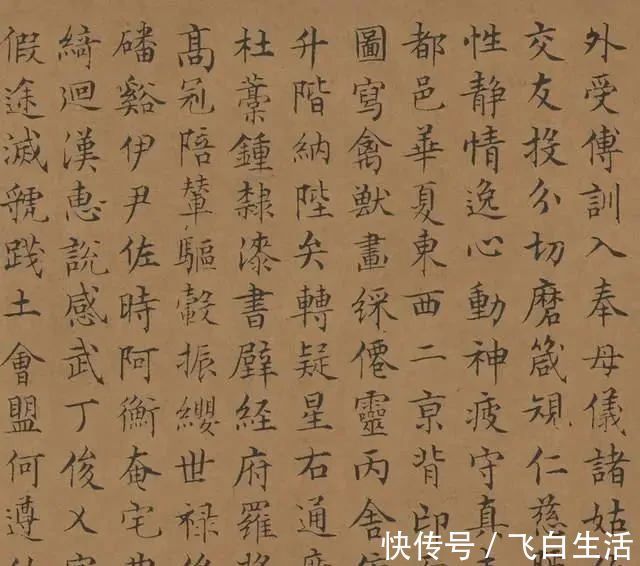 外受傅訓入奉母儀諸姑
交友投分切磨箴規仁慈
性靜情逸心動神疲守真
都邑華夏東西二京背邙
圖寫禽獸畫綵僊靈丙舍
升階納陛弁轉疑星右通
杜藁鍾隸漆書壁經府羅
高冠陪輦驅轂振纓世祿
磻谿伊尹佐時阿衡奄宅
綺迴漢惠說感武丁俊乂
假途滅虢踐土會盟何遵
快传号／飞白生活